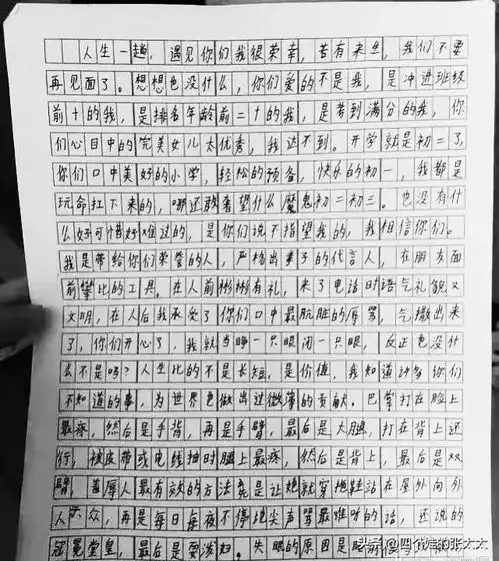 人生一趟，遇见你们我很荣幸，若有来生，我们不要
再见面了。想想也没什么，你们爱的不是我，是冲进班级
前十的我，是排名年龄前二十的我，是考到满分的我，你
们心目中的完美女儿太优秀，我达不到。开学就是初二了，
你们口中美好的小学，轻松的预备，快乐的初一，我都是
玩命扛下来的，哪还敢奢望什么魔鬼初二初三。也没有什
么好可惜好难过的，是你们说不指望我的，我相信你们。
我是带给你们荣誉的人，严格出事了的代言人，在朋友面
前攀比的工具。在人前彬彬有礼，来了电话时语气礼貌又
文明，在人后我承受了你们口中最肮脏的辱骂，气撒出来
了，你们开心了，我就当睁一只眼闭一只眼，反正也没什
么不是吗？人生比的不是长短，是价值，我知道许多你们
不知道的事，为世界也做出过微薄的贡献。巴掌打在脸上
最疼，然后是手背，再是手臂，最后是大腿，打在背上还
行，被皮带或电线抽时腿上最疼，然后是背上，最后是双
臂，羞辱人最有效的方法就是让她就穿拖鞋站在屋外向外
人示众，再是每日每夜不停地尖声骂最难听的话，还说的
冠冕堂皇，最后是耍泼妇。失眠的原因是睡前
头条 @四个娃的张太太